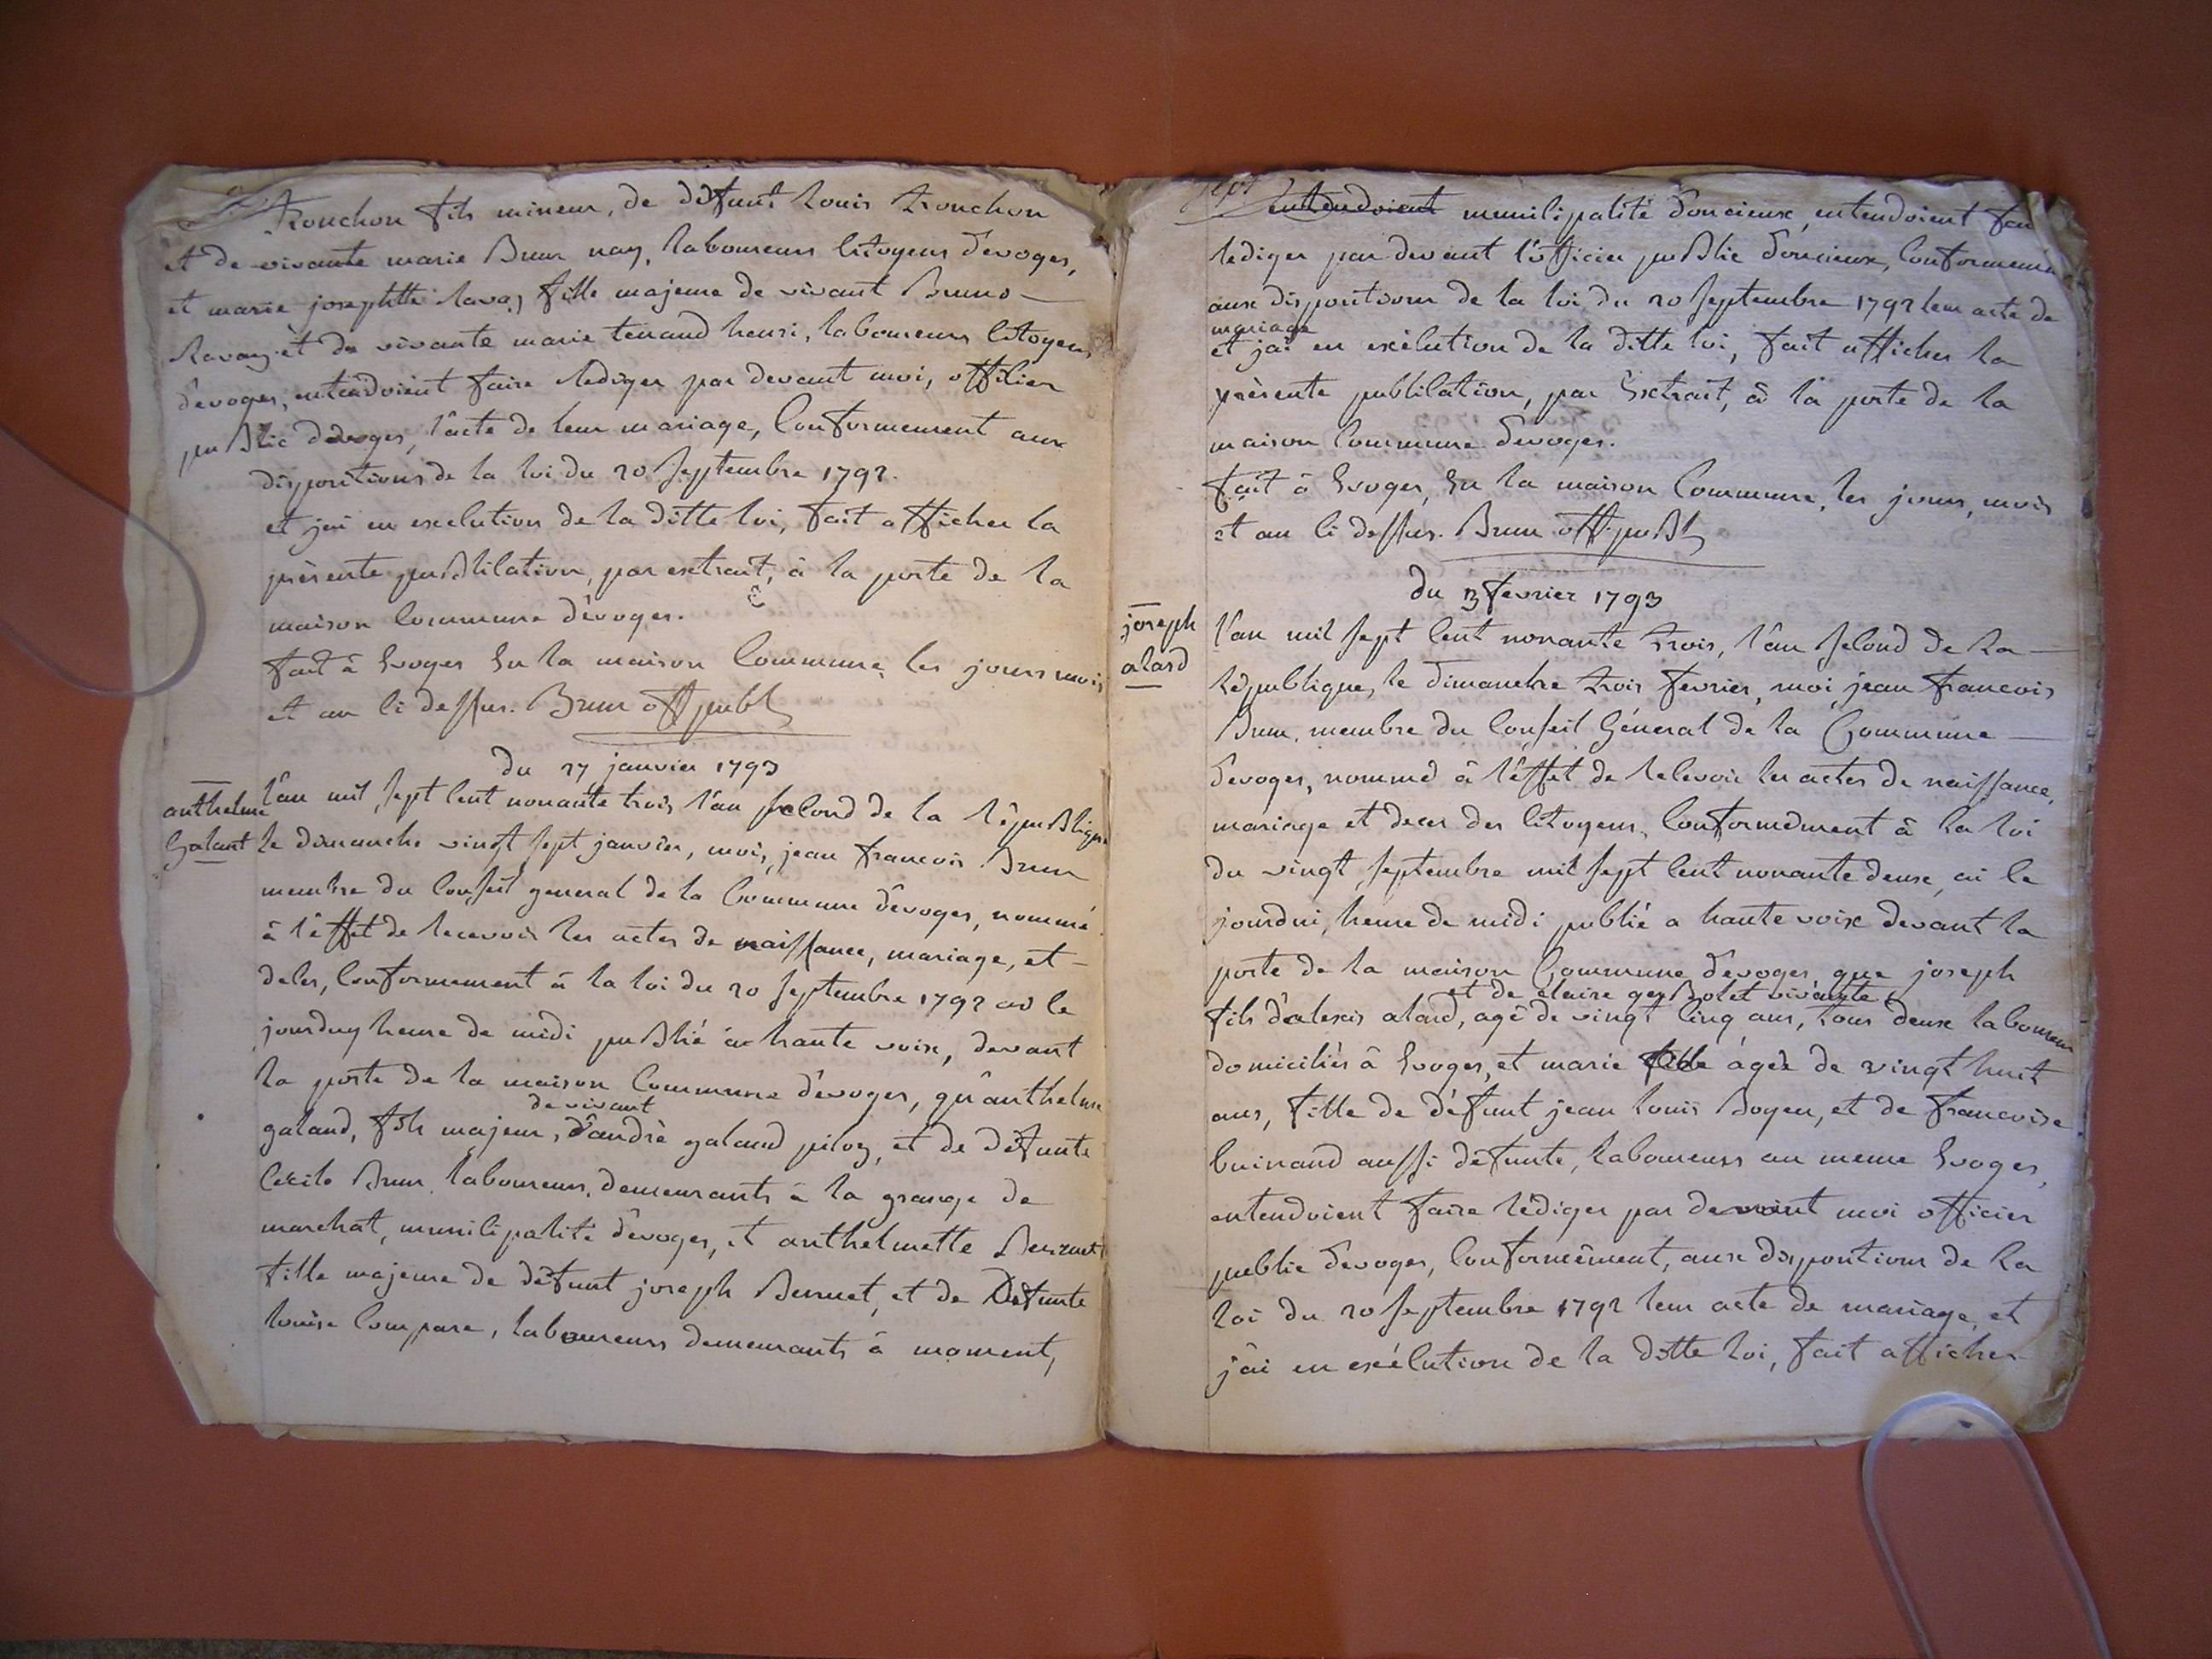 Tronchon fils mineur, de défunt Louis Tronchon
et de vivante marie Brun nay, laboureurs Citoyens d'evoges,
et marie josephtte ravaz fille majeure de vivant Bruno
Ravaz et de vivante marie tenand henri, laboureurs Citoyens
d'evoges, entendoient faire rediger par devant moi, officier
public d'evoges, l'acte de leur mariage, Conformement aux
dispositions de la loi du 20 Septembre 1792.
et jai en execution de la ditte loi, fait afficher la
présente publication, par extrait, à la porte de la
maison Commune d'evoges.
fait à Evoges En la maison Commune, les jours mois
et an ci dessus. Brun off publ
du 27 janvier 1793
anthelme
Galant
l'an mil sept cent nonante trois, l'an second de la république
le dimanche vingt sept janvier, moi, jean francois Brun
membre du Conseil general de la Commune d'evoges, nommé
à l'éffet de recevoir les actes de naissance, mariage, et
deces, Conformement à la loi du 20 Septembre 1792 ai le
jourduy heure de midi publié à haute voix, devant
la porte de la maison Commune d'evoges, qu'anthelme
de vivant
galand, fils majeur, d'andré galand piloz, et de défunte
Cecile Brun, laboureurs, demeurants à la grange de
marchat, municipalité d'evoges, et anthelmette Berruet
fille majeure de défunt joseph Berruet, et de Défunte
louise Compare, laboureurs demeurants à moment,
sept
entendoient municipalité d'oncieux, entendoient fai
rediger par devant l'officier public d'oncieux, Conformement
aux dispositions de la loi du 20 Septembre 1792 leur acte de
mariage
et jai en exécution de la ditte loi, fait afficher la
présente publication, par Extrait, à la porte de la
maison Commune d'evoges.
fait à Evoges, En la maison Commune, les jours, mois
et an ci dessus. Brun off. publ
du 3 fevrier 1793
joseph
alard
l'an mil sept cent nonante trois, l'an second de la
République, le dimanche trois fevrier, moi jean francois
Brun, membre du Conseil Géneral de la Commune
d'evoges, nommé à l'éffet de recevoir les actes de naissance,
mariage et deces des Citoyens, Conformément à la loi
du vingt septembre mil sept cent nonante deux, ai le
jourdui, heure de midi publié a haute voix devant la
porte de la maison Commune d'evoges, que joseph
et de claire gey Bolet vivante
fils d'alexis alard, agé de vingt cinq ans, tous deux laboureurs
domiciliés à Evoges, et marie agée de vingt huit
ans, fille de défunt jean louis Boyeu, et de francoise
buinand aussi défunte, laboureurs au meme Evoges,
entendoient faire rédiger par devant moi officier
public d'evoges, Conformément, aux dispositions de la
loi du 20 Septembre 1792 leur acte de mariage, et
j'ai en exécution de la ditte loi, fait afficher